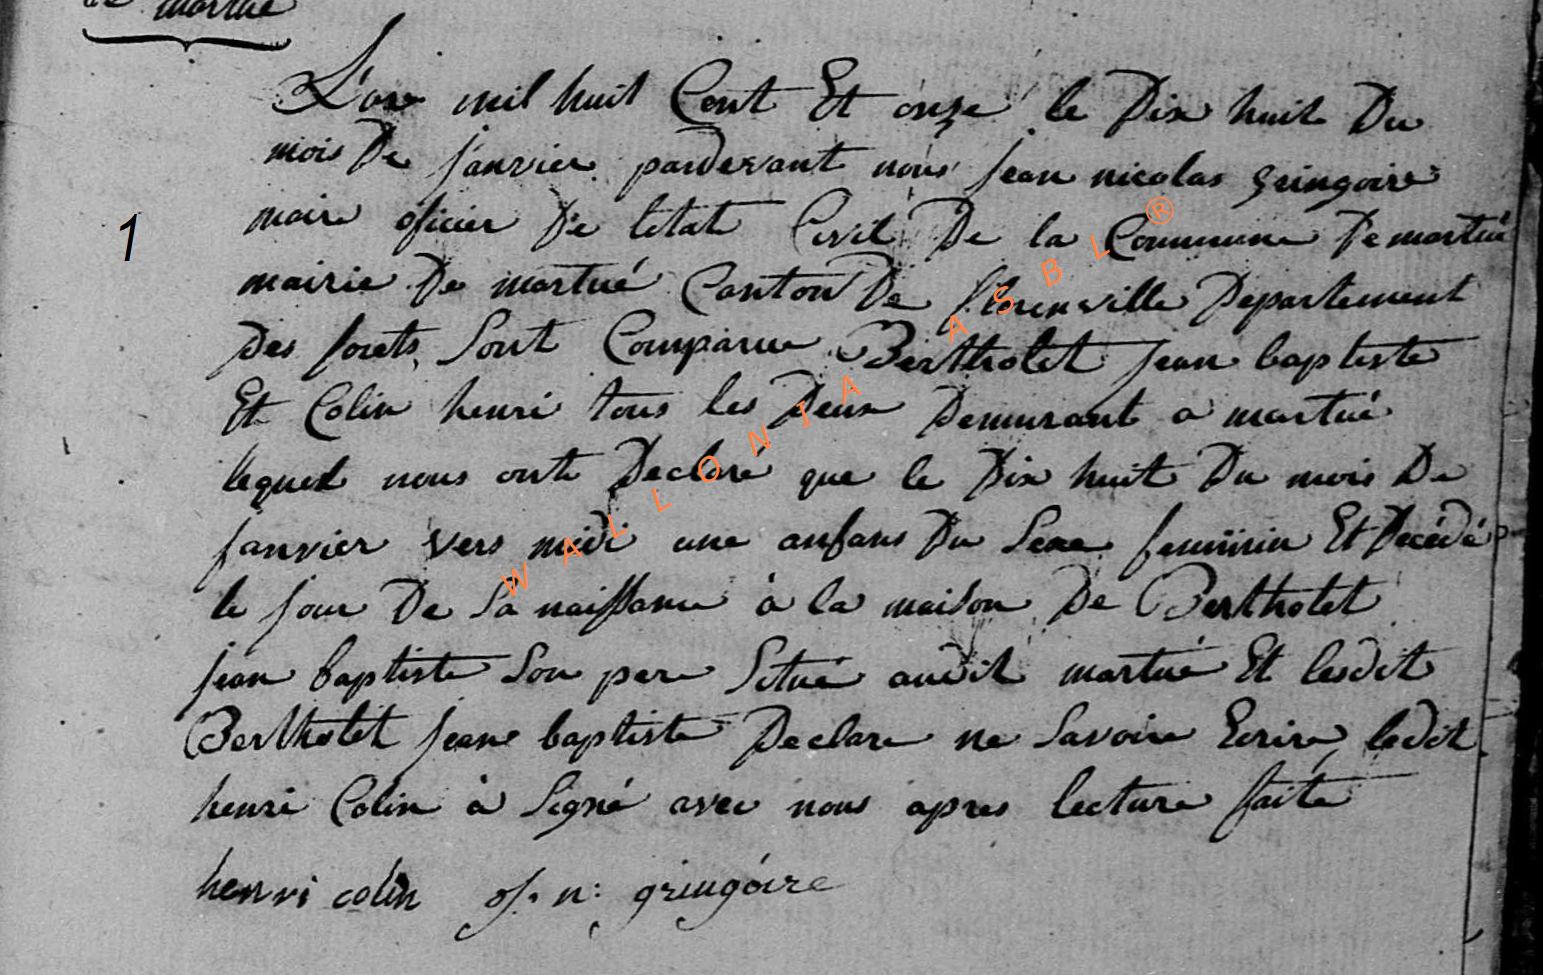 de martué
L'an mil huit Cent Et onze le Dix huit Du
mois De janvier pardevant nous jean nicolas gringoire
maire oficier De letat Civil De la Commune De martué
mairie De martué Canton De florenville Departement
Des forets Sont Comparue Bertholet jean baptiste
Et Colin henri tous les Deux Demurant a martué
lequel nous ont Declaré que le Dix huit Du mois De
janvier vers midi une anfans Du Sexe feminin Et Decédé
le jour De Sa naissance à la maison De Bertholet
jean baptiste Son pere Situé audit martué Et lesdit
Bertholet jean baptiste Declare ne Savoire Ecrire ledit
henri Colin à Signé avec nous apres lecture faite
henri colin j. n: gringoire
1
WALLONIA ASBL ®